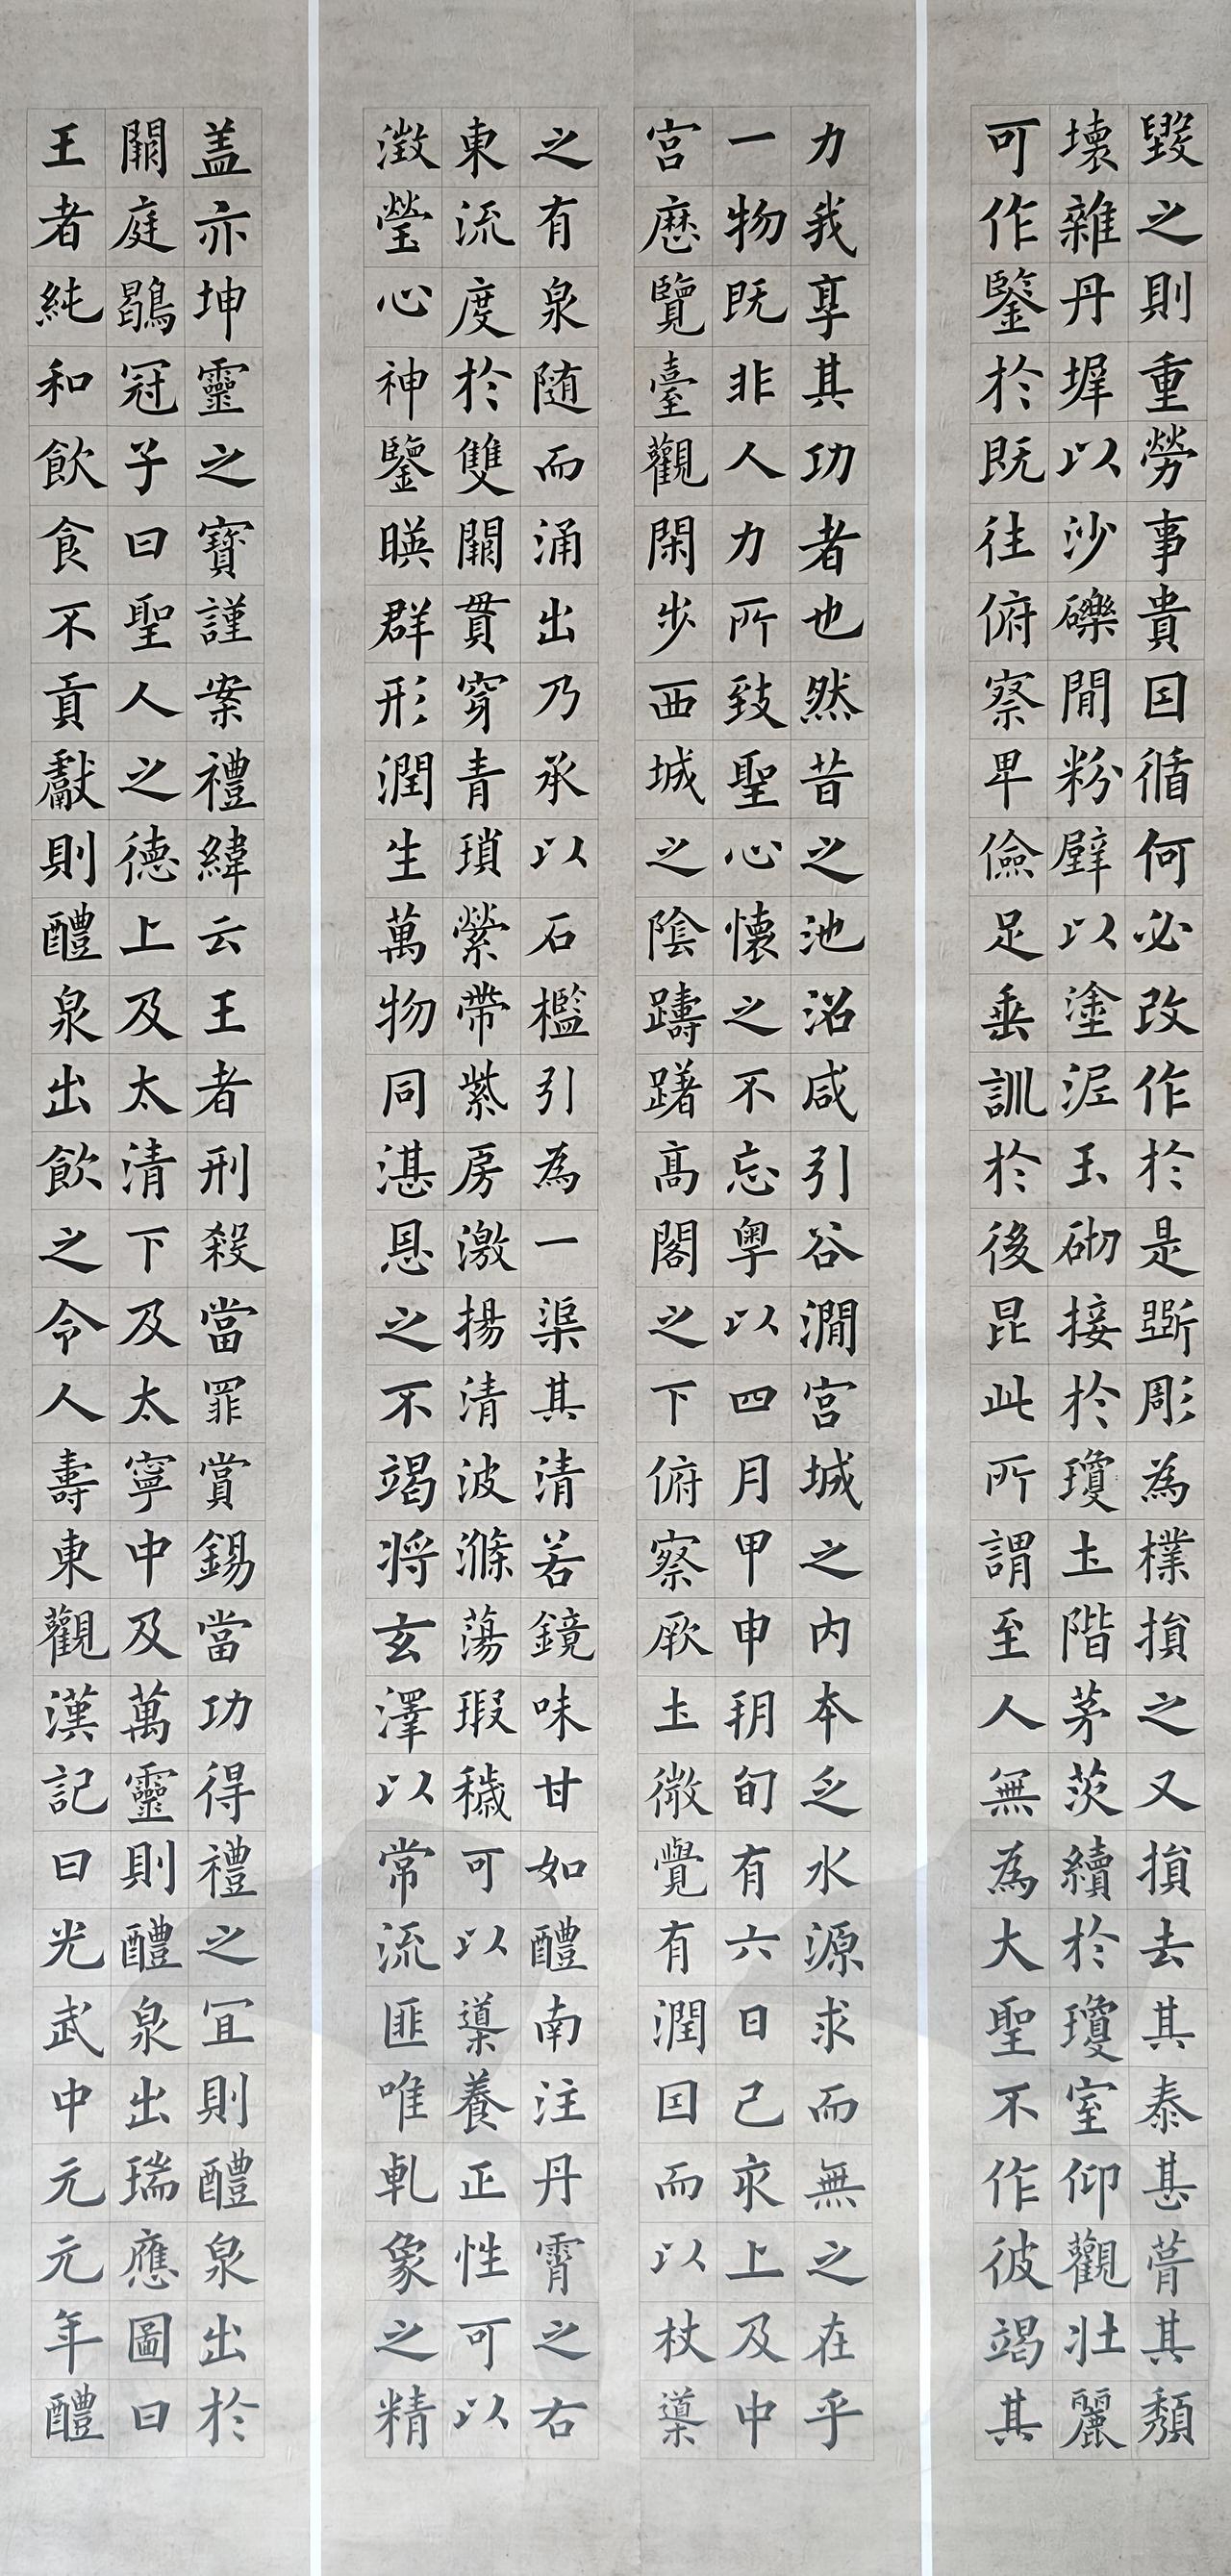 毀之則重勞事貴因循何必改作於是斲彫為樸損之又損去其泰甚葺其頹
壞雜丹墀以沙礫間粉壁以塗泥玉砌接於瓊土階茅茨續於瓊室仰觀壯麗
可作鑒於既往俯察卑儉足垂訓於後昆此所謂至人無為大聖不作彼竭其
力我享其功者也然昔之池沼咸引谷澗宮城之內本乏水源求而無之在乎
一物既非人力所致聖心懷之不忘粵以四月甲申朔旬有六日己亥上及中
宮歷覽臺觀閑步西城之陰躊躇高閣之下俯察厥土微覺有潤因而以杖導
之有泉随而涌出乃承以石檻引為一渠其清若鏡味甘如醴南注丹霄之右
東流度於雙闕貫穿青瑣縈帶紫房激揚清波滌蕩瑕穢可以導養正性可以
澂瑩心神鑒暎群形潤生萬物同湛恩之不竭将玄澤以常流匪唯乹象之精
盖亦坤靈之寶謹案禮緯云王者刑殺當罪賞錫當功得禮之宜則醴泉出於
闕庭鶡冠子曰聖人之德上及太清下及太寧中及萬靈則醴泉出瑞應圖曰
王者純和飲食不貢獻則醴泉出飲之令人壽東觀漢記曰光武中元元年醴